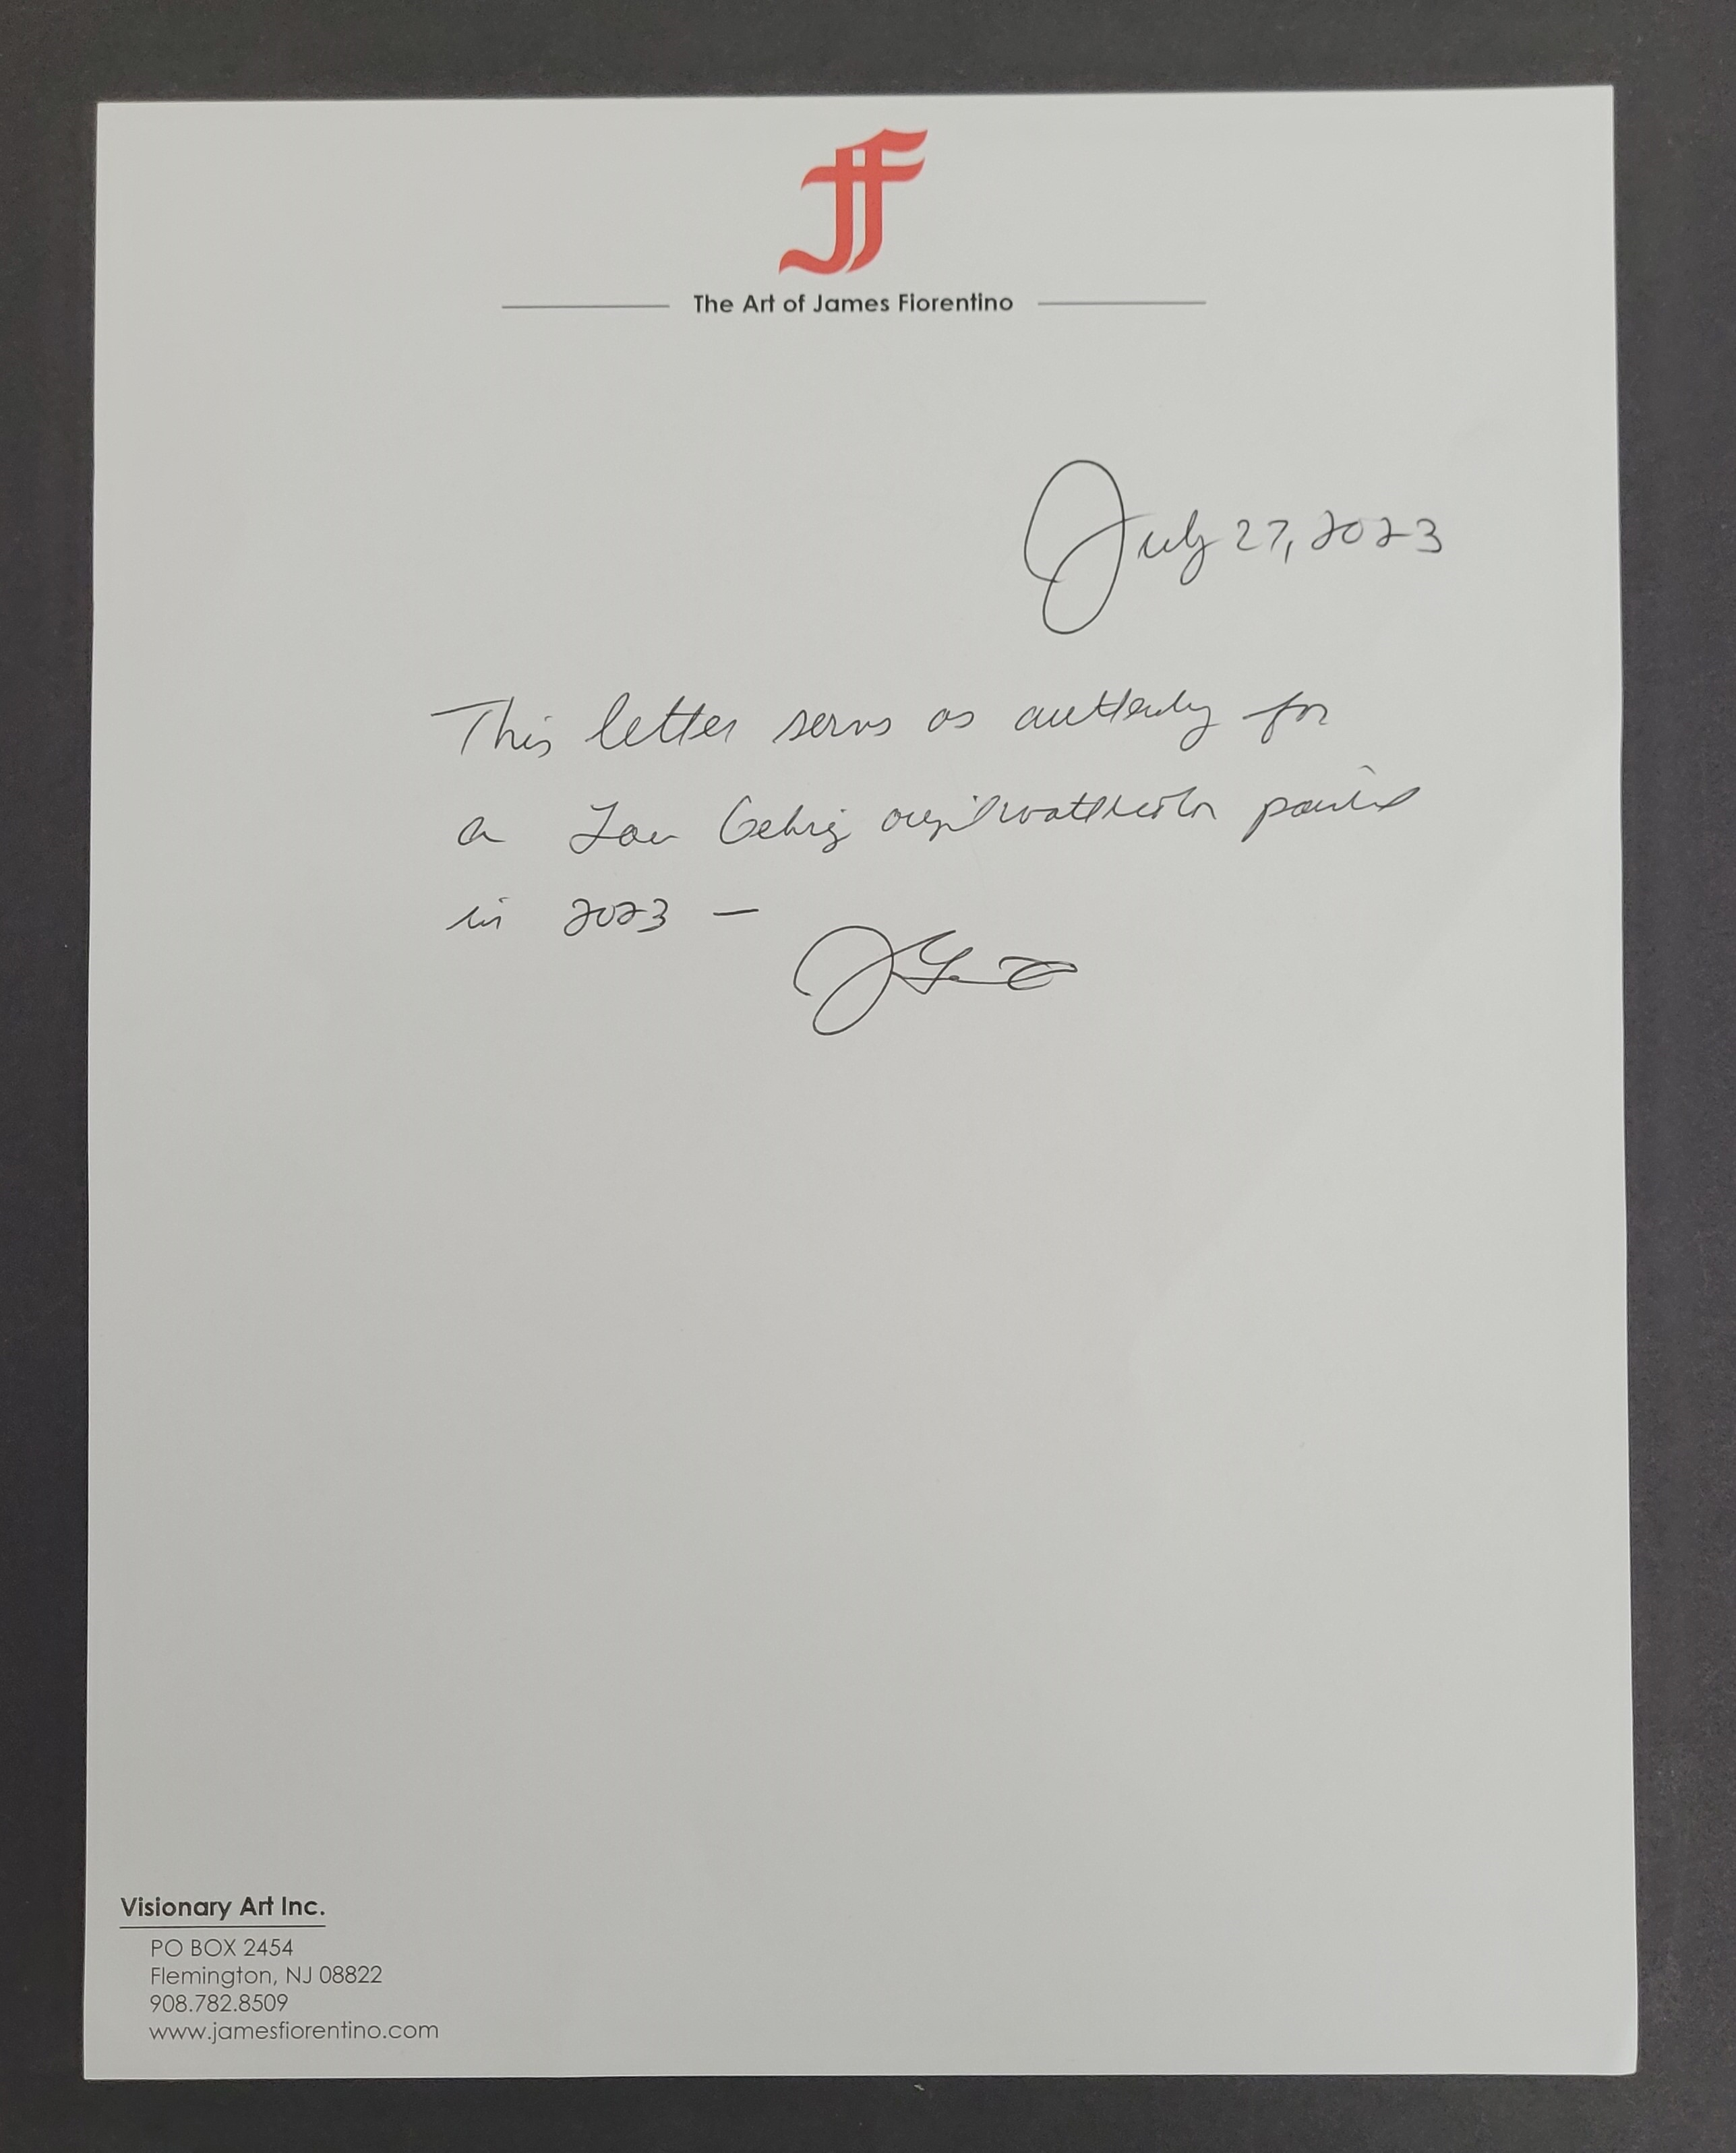 JF
The Art of James Fiorentino
July 27, 2023
This letter serves as authenticity for
a Lou Gehrig original watercolor painted
in 2023 —
Visionary Art Inc.
PO BOX 2454
Flemington, NJ 08822
908.782.8509
www.jamesfiorentino.com